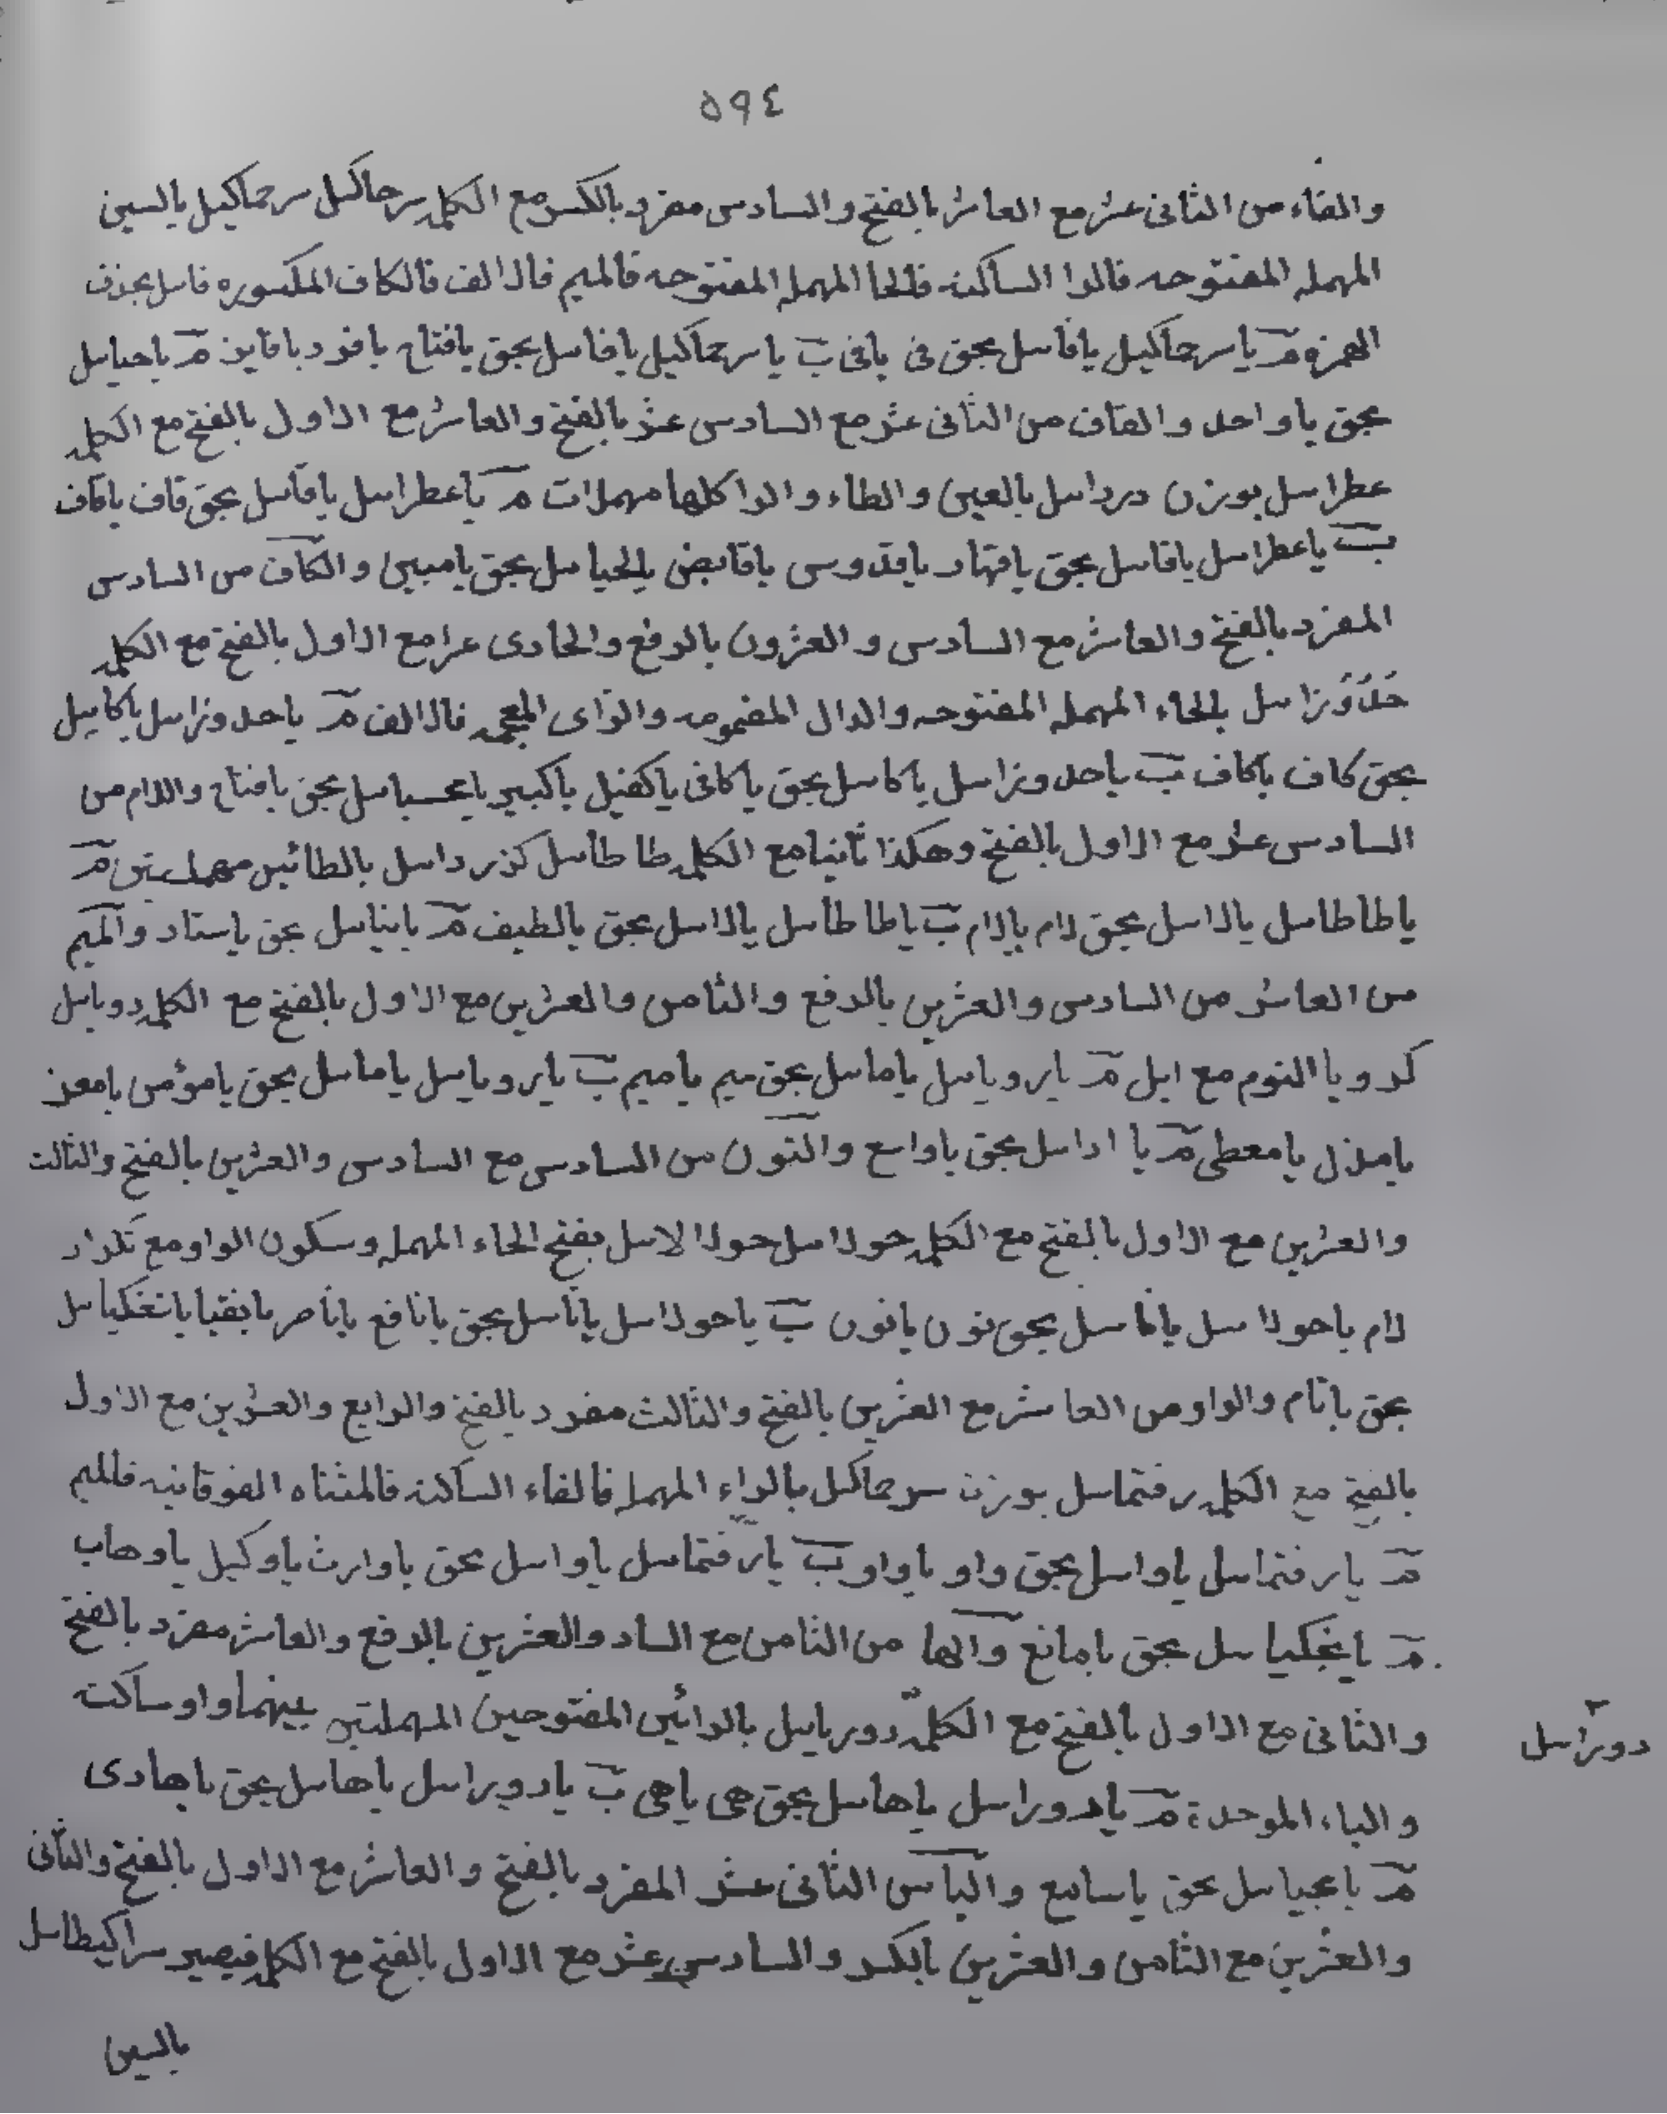 ٥٩٤
والفاء من الثانى عشر مع العاشر بالفتح والسادس مفرد بالكسر مع الكلمه سرحماكيل سرحماكيل بالسين
المهمله المفتوحه فالرا الساكنه فالحا المهمله المفتوحه فالميم فالالف فالكاف المكسوره فايل بحذف
الهمزه مـ يا سرحماكيل يافايل بحق فى يافى ب يا سرحماكيل يافايل بحق يافتاح يافرد يافايز مـ ياحيايل
بحق ياواحد والقاف من الثانى عشر مع السادس عشر بالفتح والعاشر مع الاول بالفتح مع الكلمه
عطرايل بوزن دردايل بالعين والطاء والرا كلها مهملات مـ ياعطرايل ياقايل بحق قاف ياقاف
ب ياعطرايل ياقايل بحق ياقهار ياقدوس ياقابض يالحيايل بحق يامبين والكاف من السادس
المفرد بالفتح والعاشر مع السادس والعشرون بالرفع والحادى عشر مع الاول بالفتح مع الكلمه
حَدُوْزايل بالحاء المهمله المفتوحه والدال المضمومه والزاى المعجمه فالالف مـ ياحدوزايل ياكاييل
بحق كاف ياكاف ب ياحدوزايل ياكايل بحق ياكافى ياكفيل ياكبير بحق يافتاح واللام من
السادس عشر مع الاول بالفتح وهكذا ثانيا مع الكلمه طاطايل كزردايل بالطائين مهملتين مـ
ياطاطايل يالايل بحق لام يالام ب ياطاطايل يالايل بحق يالطيف مـ يابنيايل بحق ياستار والميم
من العاشر من السادس والعشرين بالرفع والثامن والعشرين مع الاول بالفتح مع الكلمه رويايل
كرويا النوم مع ايل مـ يارويايل يامايل بحق ميم ياميم ب يارويايل يامايل بحق يامؤمن يامعز
يامذل يامعطى مـ يا ادايل بحق ياواسع والنون من السادس مع السادس والعشرين بالفتح والثالث
والعشرين مع الاول بالفتح مع الكلمه حولايل حولالايل بفتح الحاء المهمله وسكون الواو مع تكرار
لام ياحولايل يانايل بحق نون يانون ب ياحولايل يانايل بحق يانافع ياناصر يانقيا
بحق ياتام والواو من العاشر مع العشرين بالفتح والثالث مفرد بالفتح والرابع والعشرين مع الاول
بالفتح مع الكلمه رفتمايل بوزن سرحماكيل بالراء المهمله فالفاء الساكنه فالمثناه الفوقانيه فالميم
مـ يارفتمايل ياوايل بحق واو ياواو ب يارفتمايل ياوايل بحق ياوارث ياوكيل ياوهاب
مـ يايخكيايل بحق يامانع والها من الثامن مع الساد والعشرين بالرفع والعاشر مفرد بالفتح
والثانى مع الاول بالفتح مع الكلمه دوريايل بالرائين المفتوحين المهملتين بينهما واو ساكت
دورايل
والباء الموحدة مـ يادورايل ياهايل بحق هى ياهى ب يادورايل ياهايل بحق ياهادى
مـ ياعجيايل بحق ياسامع واليا من الثانى عشر المفرد بالفتح والعاشر مع الاول بالفتح والثانى
والعشرين مع الثامن والعشرين بالكسر والسادس عشر مع الاول بالفتح مع الكلمه فيصير سراكيطايل
بالسين